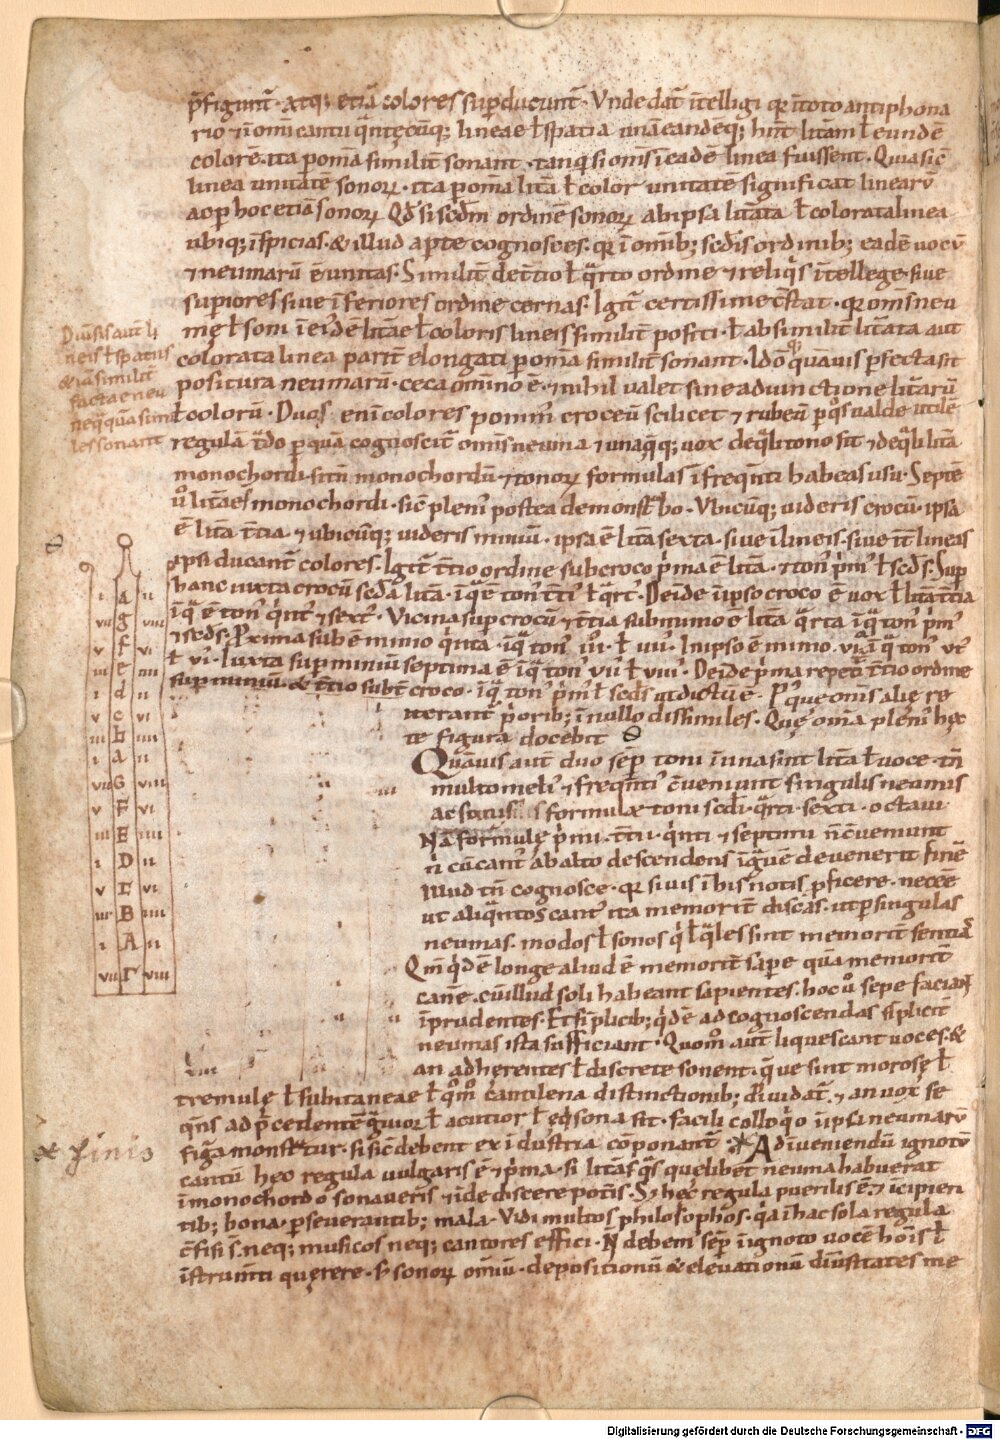 p̄figunt̄ · atq; etiā colores supducunt̄ · Vnde dat̄ ītelligi qr̄ ītoto antiphona
rio ⁊ īomī cantu q̄ntęcūq; lineae ł spatia unā eandēq; hn̄t litām ł eundē
colorē · ita pomā similit̄ sonant · tanq̄ si om̄s ī eadē linea fuissent · Quia sic̄
linea unitatē sonoꝝ · ita pomā litā ł color unitatē significat linearū
ac p hoc etiā sonoꝝ Qd̄ si scd̄m ordinē sonoꝝ ab ipsa litāta ł colorata linea
ubiq; īspicias · & illud apte cognosces · qr̄ ī omīb; scd̄is ordinib; eadē uocū
⁊ neumarū ē unitas · Similit̄ de t̄tio ł q̄rto ordine ⁊ reliq̄s ītellege · siue
supiores siue īferiores ordine cernas · Igit̄ certissime c̄stat · qr̄ om̄s neu
mę ł soni ī ei'dē litāe ł coloris lineis similit̄ positi · ł ab simili litāta aut
colorata linea parit̄ elongati pomā similit̄ sonant · Idō quāuis pfecta sit
positura neumarū · ceca omīno ē · ⁊ nihil ualet sine adiunctione litārū
ł colorū · Duos enī colores ponim' croceū scilicet ⁊ rubeū p q̄s ualde utilē
regulā t̄do p quā cognoscit̄ omīs neuma ⁊ unaq̄q; uox de q̄li tono sit ⁊ de q̄li litā
monochordi · si tn̄ monochordū ⁊ tonoꝝ formulas ī freq̄nti habeas usu · Septē
ū litāe s̄ monochordi · sic̄ pleni' postea demonst̄bo · Vbicūq; uideris crocū · ipsa
ē litā t̄tia · ⁊ ubicūq; uideris miniū · ipsa ē litā sexta · siue ī lineis · siue īt̄ lineas
ipsi ducant̄ colores · Igit̄ t̄tio ordine sub croco p̄ma ē litā · ⁊ ton' p̄m' ł scd̄s · Sup
hanc iuxta crocū scd̄a litā · ī q̄ ē ton' t̄ti' ł q̄rt' · Deīde ī ipso croco ē uox ł litā t̄tia
ī q̄ ē ton' q̄nt' ⁊ sext' · Vicina sup crocū ⁊ t̄tia sub minio ē litā q̄rta ī q̄ ton' p̄m'
⁊ scd̄s · Pxima sub ē minio q̄nta · ī q̄ ton' iii' · ł iiii' · In ipso ē minio · vi · ī q̄ ton' v'
ł vi' · Iuxta sup miniū septima ē ī q̄ ton' vii' ł viii' · Deīde p̄ma repetit̄ t̄tio ordine
sup miniū · & t̄tio subt̄ croco · ī q̄ ton' p̄m' ł scd̄s ut dictū ē · P' que om̄s alię re
iterant̄ p̄orib; ī nullo dissimiles · Quę om̄a pleni' hęc
te figura docebit
Quāuis aut̄ duo sēp toni ī una sint litā ł uoce · tn̄
multo meli' ⁊ freq̄nti' c̄ueniunt singulis neumis
ac sonis formulæ toni scd̄i · q̄rti · sexti · octaui
Nā formulę p̄mi · t̄tii · q̄nti ⁊ septimi n̄ c̄ueniunt
n̄ cū cant' ab alto descendens ī g̊uē deuenerit finē
Illud tn̄ cognosce · qr̄ si uis ī his notis pficere · necēe
ut aliq̄ntos cant' ita memorit̄ discas · ut p singulas
neumas · modos ł sonos q̄ ł q̄les sint memorit̄ sentias
Qm̄ q̄dē longe aliud ē memorit̄ sape quā memorit̄
can̄e · cū illud soli habeant sapientes · hoc ū sepe faciant
īprudentes · Et sīplicib; q̄dē ad cognoscendas sīplicit̄
neumas ista sufficiant · Quom̊ aut̄ liquescant uoces · &
an adhęrentes ł discrete sonent · que sint morosę ł
tremulę ł subitaneae ł q̊m̊ cantilena distinctionib; diuidat̄ · ⁊ an uox se
q̄ns ad p̄cedentē g̊uior ł acutior ł eq̄sona sit · facili colloq̄o ī ipsi neumarū
figa monst̄tur · si sic̄ debent ex īdustria cōponant̄ · Ad īueniendū ignotū
cantū hęc regula uulgaris ē ⁊ p̄ma · si litās q̄s quelibet neuma habuerat
ī monochordo sonaueris ⁊ īde discere pot̄is · S; hęc regula puerilis ē · ⁊ īcipien
tib; bona · pseuerantib; mala · Vidi multos philosophos · q̄a ī hac sola regula
c̄fisi s̄ · neq; musicos neq; cantores effici · N̄ debem' sēp ī ignoto uocē hōis ł
īstrum̄ti quęrere · s; sonoꝝ omiū · depositionū & eleuationū diūsitates me
Diūsis aut̄ li
neis ł spatiis
& iā similit̄
facta e neu
neq̄quā simi
les sonant
i a ii
vii g viii
v f vi
iii e iiii
i d ii
v c vi
iii b iiii
i a ii
vii G viii
v F vi
iii E iiii
i D ii
v C vi
iii B iiii
i A ii
vii Γ viii
finis
Digitalisierung gefördert durch die Deutsche Forschungsgemeinschaft - DFG